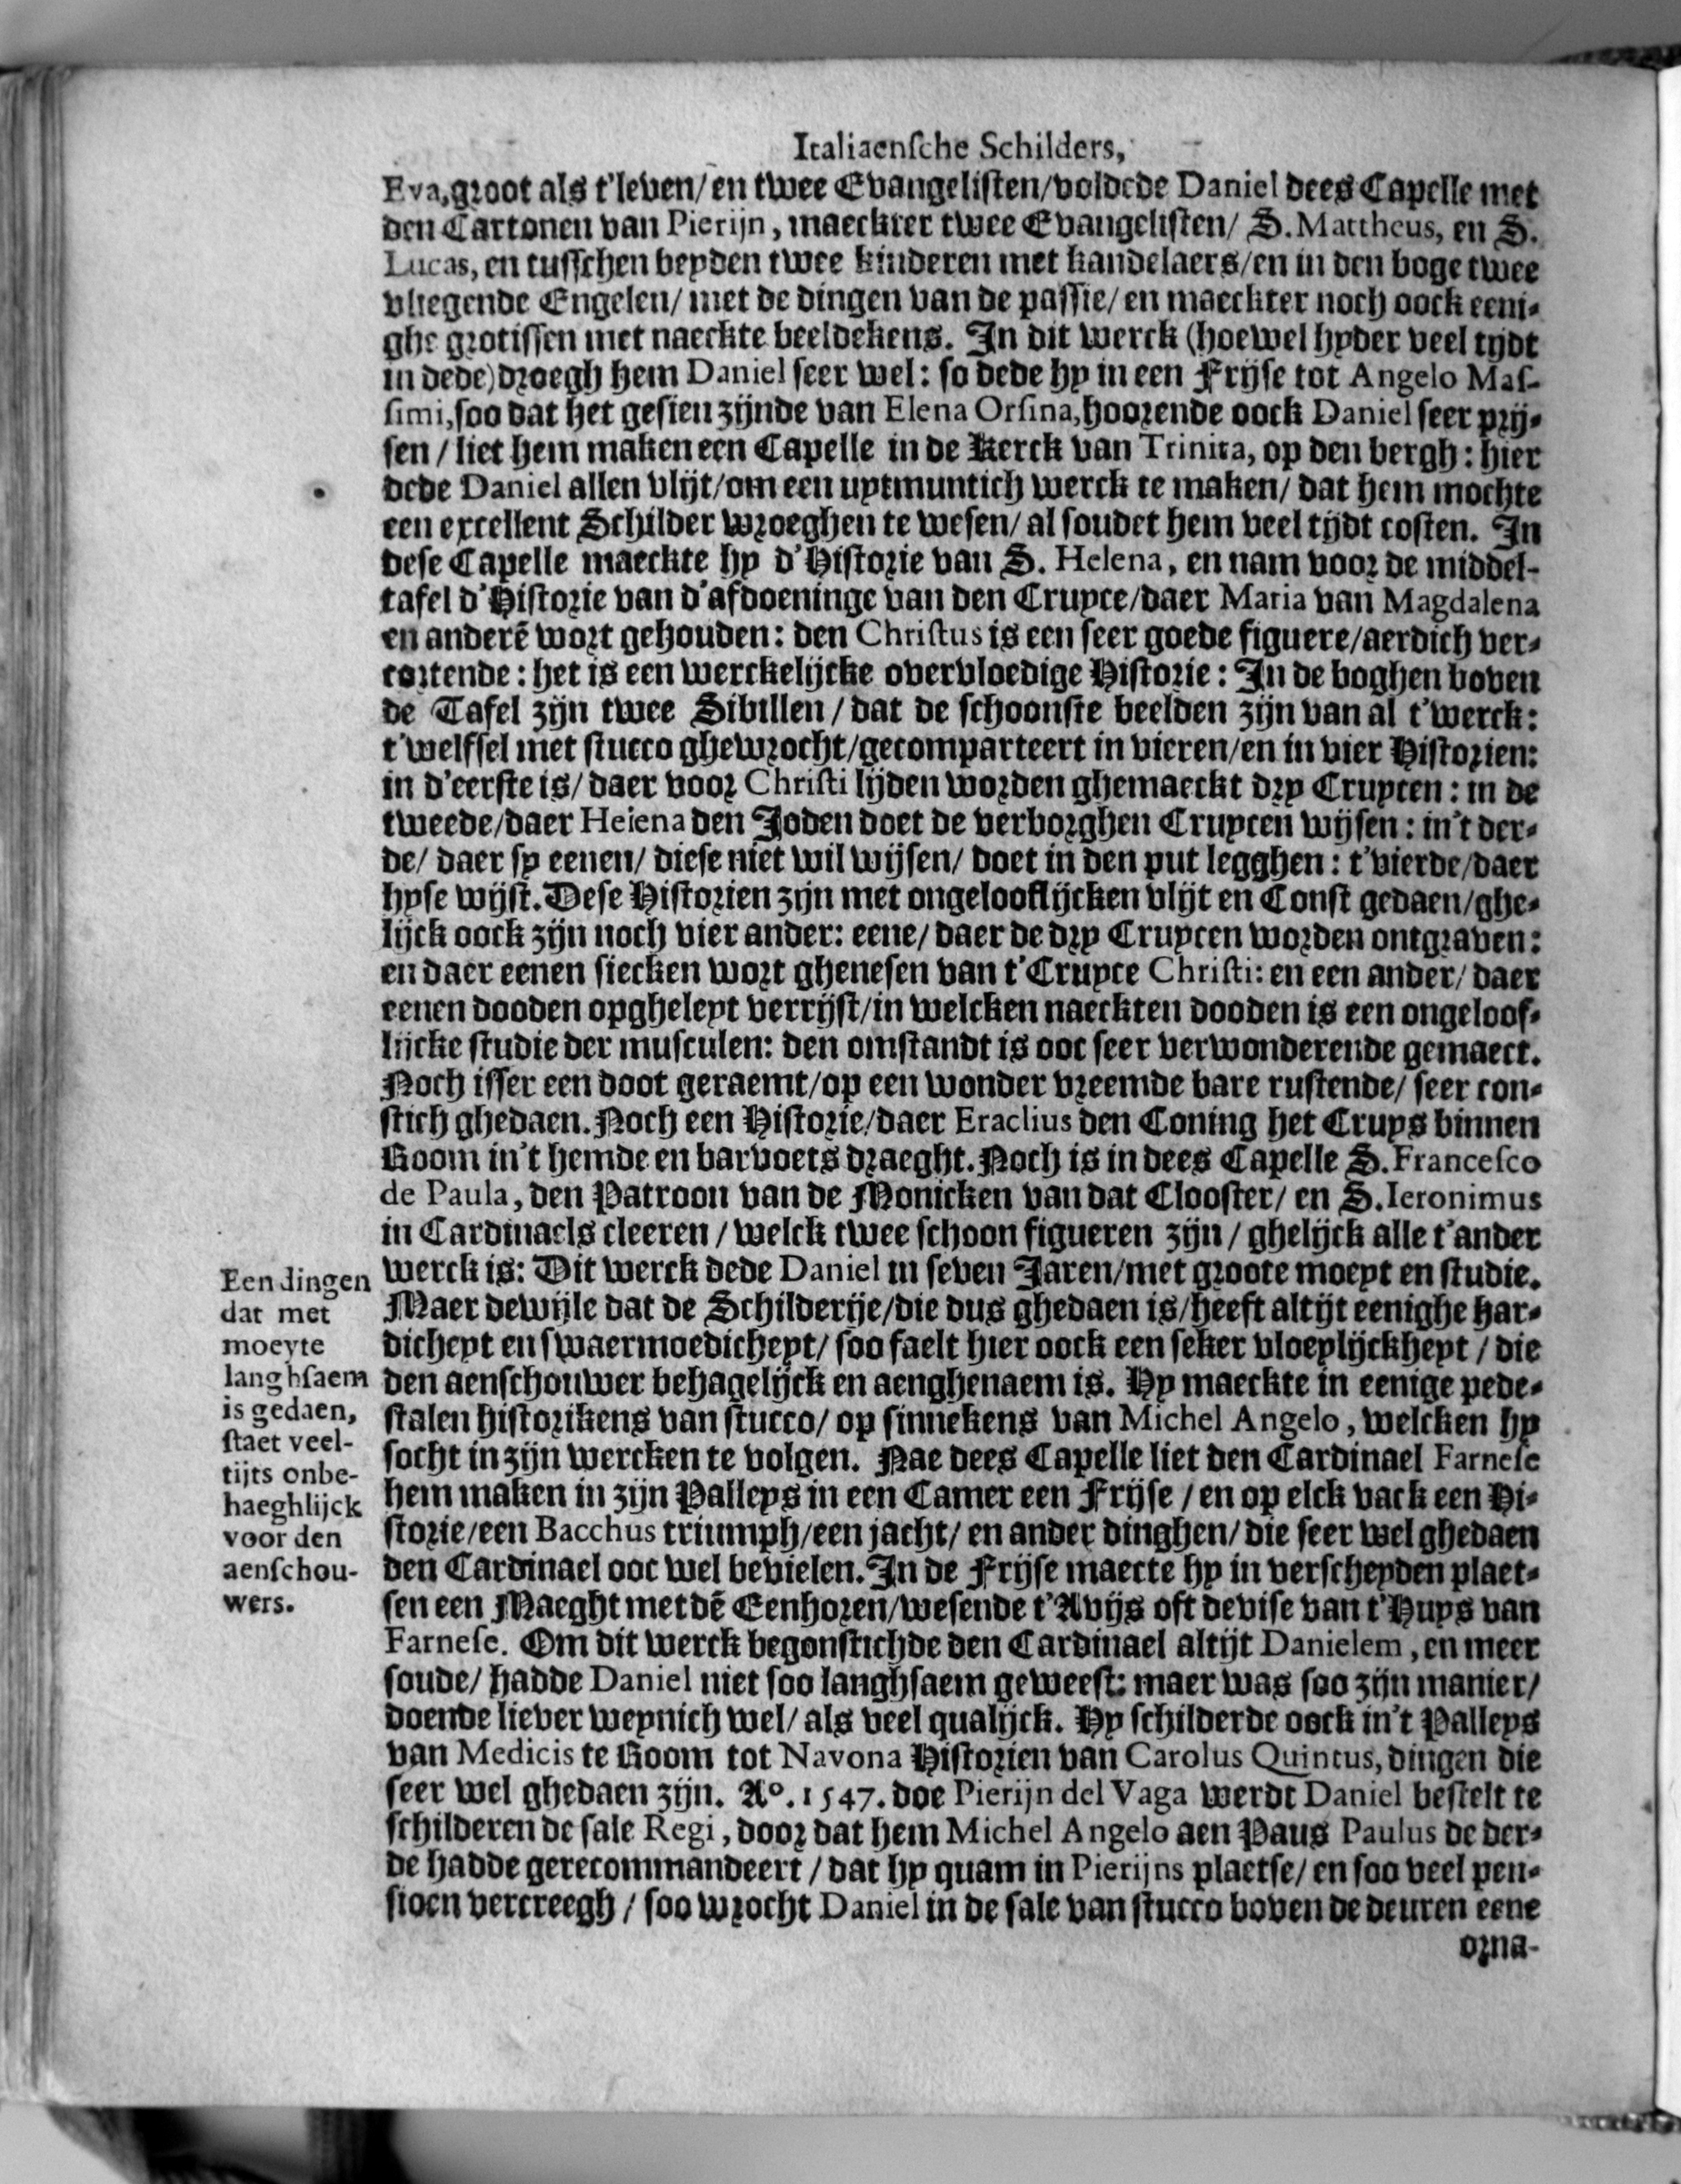 Italiaensche Schilders,
Eva, groot als t'leven/ en twee Evangelisten/ voldede Daniel dees Capelle met
den Cartonen van Pierijn, maeckter twee Evangelisten/ S. Mattheus, en S.
Lucas, en tusschen beyden twee kinderen met kandelaers/ en in den boge twee
vliegende Engelen/ met de dingen van de passie/ en maeckter noch oock eeni-
ghe grotissen met naeckte beeldekens. In dit werck (hoewel hyder veel tydt
in dede) droegh hem Daniel seer wel: so dede hy in een Frijse tot Angelo Mas-
simi, soo dat het gesien zijnde van Elena Orsina, hoorende oock Daniel seer prij-
sen/ liet hem maken een Capelle in de Kerck van Trinita, op den bergh: hier
dede Daniel allen vlijt/ om een uytmuntich werck te maken/ dat hem mochte
een excellent Schilder wroeghen te wesen/ al soudet hem veel tijdt costen. In
dese Capelle maeckte hy d'Historie van S. Helena, en nam voor de middel-
tafel d'Historie van d'afdoeninge van den Cruyce/ daer Maria van Magdalena
en anderē wort gehouden: den Christus is een seer goede figuere/ aerdich ver-
cortende: het is een werckelijcke overvloedige Historie: In de boghen boven
de Tafel zijn twee Sibillen/ dat de schoonste beelden zijn van al t'werck:
t'welfsel met stucco ghewrocht/ gecomparteert in vieren/ en in vier Historien:
in d'eerste is/ daer voor Christi lijden worden ghemaeckt dry Cruycen: in de
tweede/ daer Heiena den Joden doet de verborghen Cruycen wijsen: in't der-
de/ daer sy eenen/ diese niet wil wijsen/ doet in den put legghen: t'vierde/ daer
hyse wijst. Dese Historien zijn met ongelooflijcken vlijt en Const gedaen/ ghe-
lijck oock zijn noch vier ander: eene/ daer de dry Cruycen worden ontgraven:
en daer eenen siecken wort ghenesen van t'Cruyce Christi: en een ander/ daer
eenen dooden opgheleyt verrijst/ in welcken naeckten dooden is een ongeloof-
lijcke studie der musculen: den omstandt is ooc seer verwonderende gemaect.
Noch isser een doot geraemt/ op een wonder vreemde bare rustende/ seer con-
stich ghedaen. Noch een Historie/ daer Eraclius den Coning het Cruys binnen
Room in't hemde en barvoets draeght. Noch is in dees Capelle S. Francesco
de Paula, den Patroon van de Monicken van dat Clooster/ en S. Ieronimus
in Cardinaels cleeren/ welck twee schoon figueren zijn/ ghelijck alle t'ander
werck is: Dit werck dede Daniel in seven Jaren/ met groote moeyt en studie.
Maer dewijle dat de Schilderije/ die dus ghedaen is/ heeft altijt eenighe har-
dicheyt en swaermoedicheyt/ soo faelt hier oock een seker vloeylijckheyt/ die
den aenschouwer behagelijck en aenghenaem is. Hy maeckte in eenige pede-
stalen historikens van stucco/ op sinnekens van Michel Angelo, welcken hy
socht in zijn wercken te volgen. Nae dees Capelle liet den Cardinael Farnese
hem maken in zijn Palleys in een Camer een Frijse/ en op elck vack een Hi-
storie/ een Bacchus triumph/ een jacht/ en ander dinghen/ die seer wel ghedaen
den Cardinael ooc wel bevielen. In de Frijse maecte hy in verscheyden plaet-
sen een Maeght met dē Eenhoren/ wesende t'Avijs oft devise van t'Huys van
Farnese. Om dit werck begonstichde den Cardinael altijt Danielem, en meer
soude/ hadde Daniel niet soo langhsaem geweest: maer was soo zijn manier/
doende liever weynich wel/ als veel qualijck. Hy schilderde oock in't Palleys
van Medicis te Room tot Navona Historien van Carolus Quintus, dingen die
seer wel ghedaen zijn. Aº. 1547. doe Pierijn del Vaga werdt Daniel bestelt te
schilderen de sale Regi, door dat hem Michel Angelo aen Paus Paulus de der-
de hadde gerecommandeert/ dat hy quam in Pierijns plaetse/ en soo veel pen-
sioen vercreegh/ soo wrocht Daniel in de sale van stucco boven de deuren eene
orna-
Een dingen
dat met
moeyte
langhsaem
is gedaen,
staet veel-
tijts onbe-
haeghlijck
voor den
aenschou-
wers.